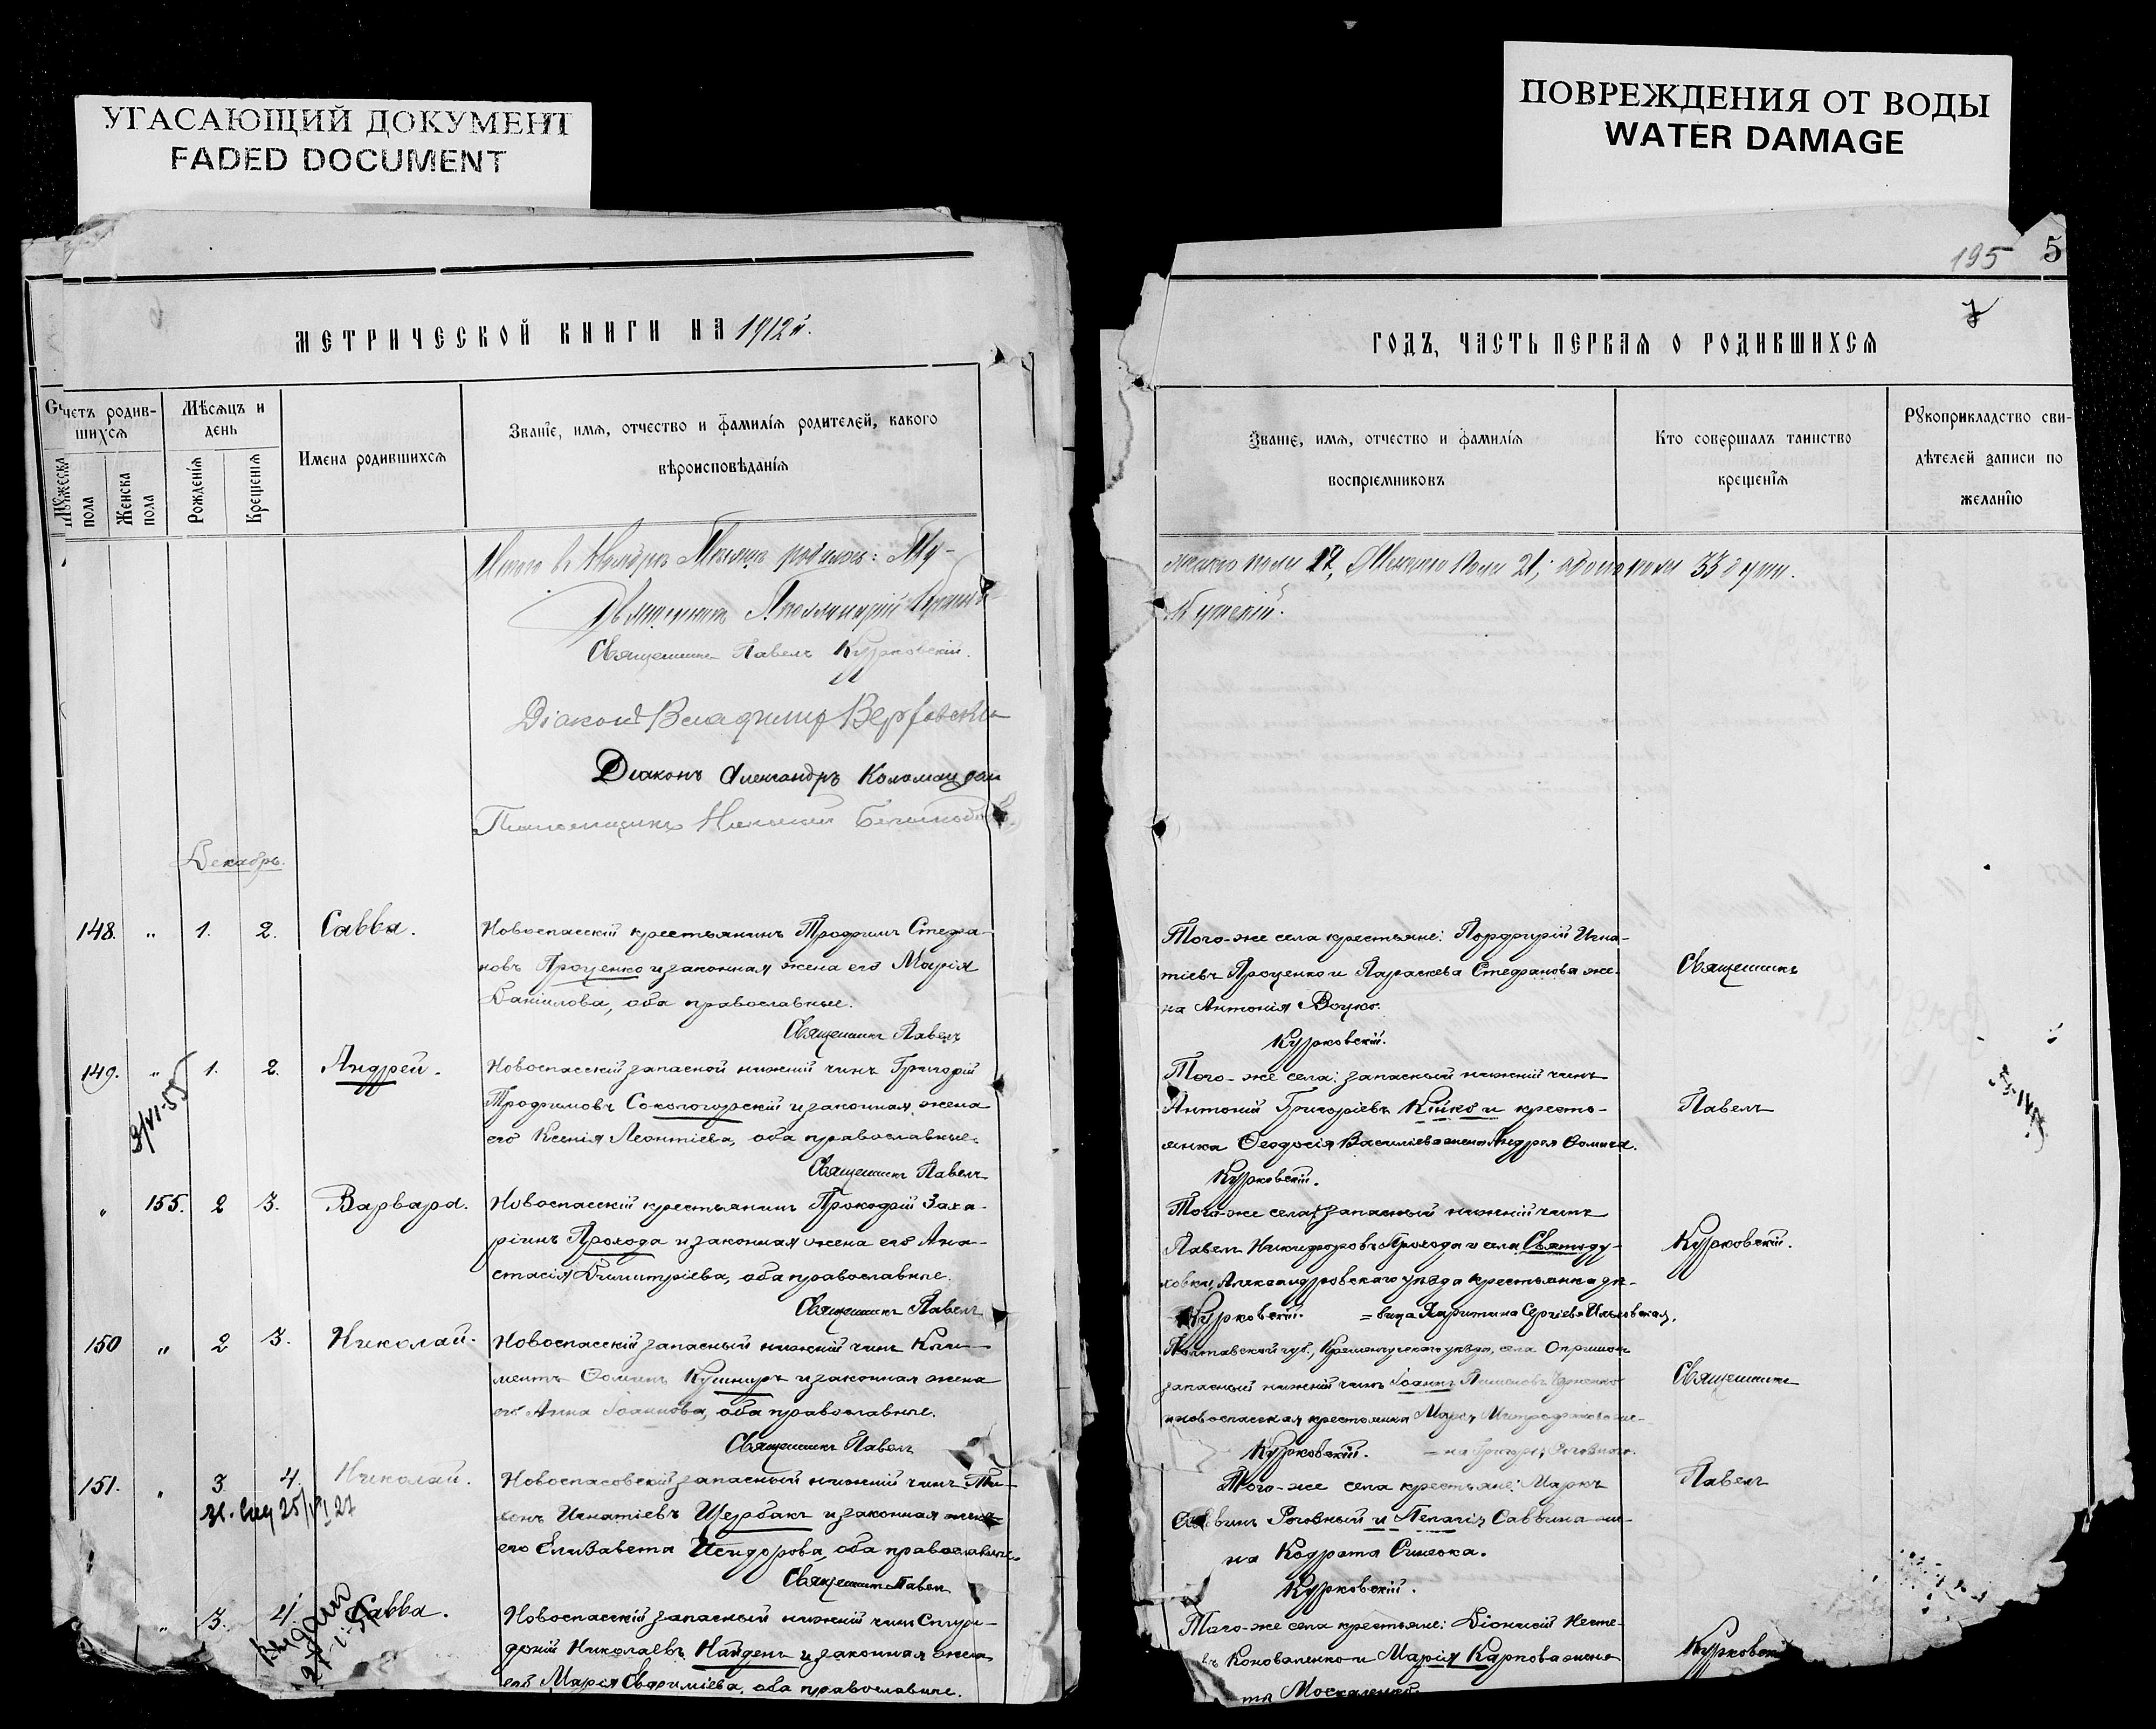 УГАСАЮЩИЙ ДОКУМЕНТ
FADED DOCUMENT
ПОВРЕЖДЕНИЯ ОТ ВОДЫ
WATER DAMAGE
195 5
МЕТРИЧЕСКОЙ КНИГИ НА 1912й.
ГОДЪ, ЧАСТЬ ПЕРВАЯ О РОДИВШИХСЯ
Счетъ родившихся
Мужеска пола
Женска пола
Мѣсяцъ и день
Рожденія
Крещенія
Имена родившихся
Званіе, имя, отчество и фамилія родителей, какого
вѣроисповѣданія
Званіе, имя, отчество и фамилія
воспріемниковъ
Кто совершалъ таинство
крещенія
Рукоприкладство сви-
дѣтелей записи по
желанію
Итого въ Ноябрѣ Мѣсяцѣ родилось: Му-
жеска пола 17, Женска пола 21; обоего пола 33 души.
Священникъ Павелъ Курковскій.
Діаконъ Владиміръ
Діаконъ Александръ
Псаломщикъ
Декабрь.
148. " 1. 2. Савва.
Новоспасскій крестьянинъ Трофимъ Стефа-
новъ Проценко и законная жена его Марія
Даніилова, оба православные.
Священникъ Павелъ
Того-же села крестьяне: Порфирій Игна-
тіевъ Проценко и Параскева Стефанова же-
на Антонія Воцко.
Курковскій.
Священникъ
149. " 1. 2. Андрей.
3/VI-55
Новоспасскій запасной нижній чинъ Григорій
Трофимовъ Сокологорскій и законная жена
его Ксенія Леонтіева, оба православные.
Священникъ Павелъ
Того-же села: запасный нижній чинъ
Антоній Григоріевъ Кійко и кресть-
янка Ѳеодосія Василіева жена Андрея Ѳомича.
Курковскій.
Павелъ
" 155. 2 3. Варвара.
Новоспасскій крестьянинъ Прокофій Заха-
ріинъ Прохода и законная жена его Ана-
стасія Димитріева, оба православные.
Священникъ Павелъ
Того-же села: запасный нижній чинъ
Павелъ Никифоровъ Прохода и села Святоду-
ховки, Александровскаго уѣзда крестьянка дѣ-
=вица Харитина Сергіева
Курковскій.
Курковскій.
150 " 2 3. Николай.
Новоспасскій запасный нижній чинъ Кли-
ментъ Ѳоминъ Кушниръ и законная жена
его Анна Іоаннова, оба православные.
Священникъ Павелъ
Полтавской губ., Кременчугскаго уѣзда, села
запасный нижній чинъ Іоаннъ
и новоспасская крестьянка Марія Митрофанова же-
=на Григорія
Курковскій.
Священникъ
151. " 3. 4. Николай.
Новоспасовскій запасный нижній чинъ Ти-
хонъ Игнатіевъ Щербакъ и законная жена
его Елизавета Исидорова, оба православные.
Священникъ Павелъ
Того-же села крестьяне: Маркъ
Саввинъ Роговный и Пелагія Саввина же-
на Кодрата
Курковскій.
Павелъ
" 3. 4. Савва.
Выдан
Новоспасскій запасный нижній чинъ Спири-
доній Николаевъ Найденъ и законная жена
его Марія Евфиміева, оба православные.
Того-же села крестьяне: Діонисій Несте-
въ Коноваленко и Марія Карпова жена
та Москаленко.
Курковскій